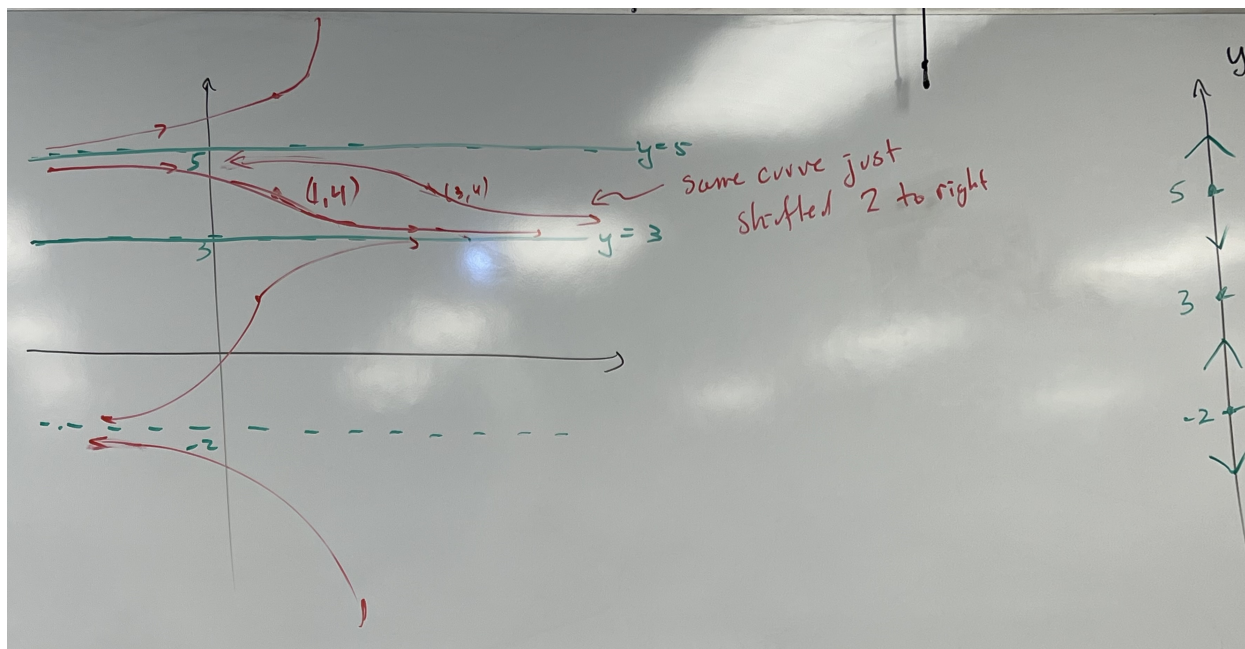 y
y=5
5
(1,4)
(3,4)
same curve just
shifted 2 to right
y = 3
3
-2
5
3
-2